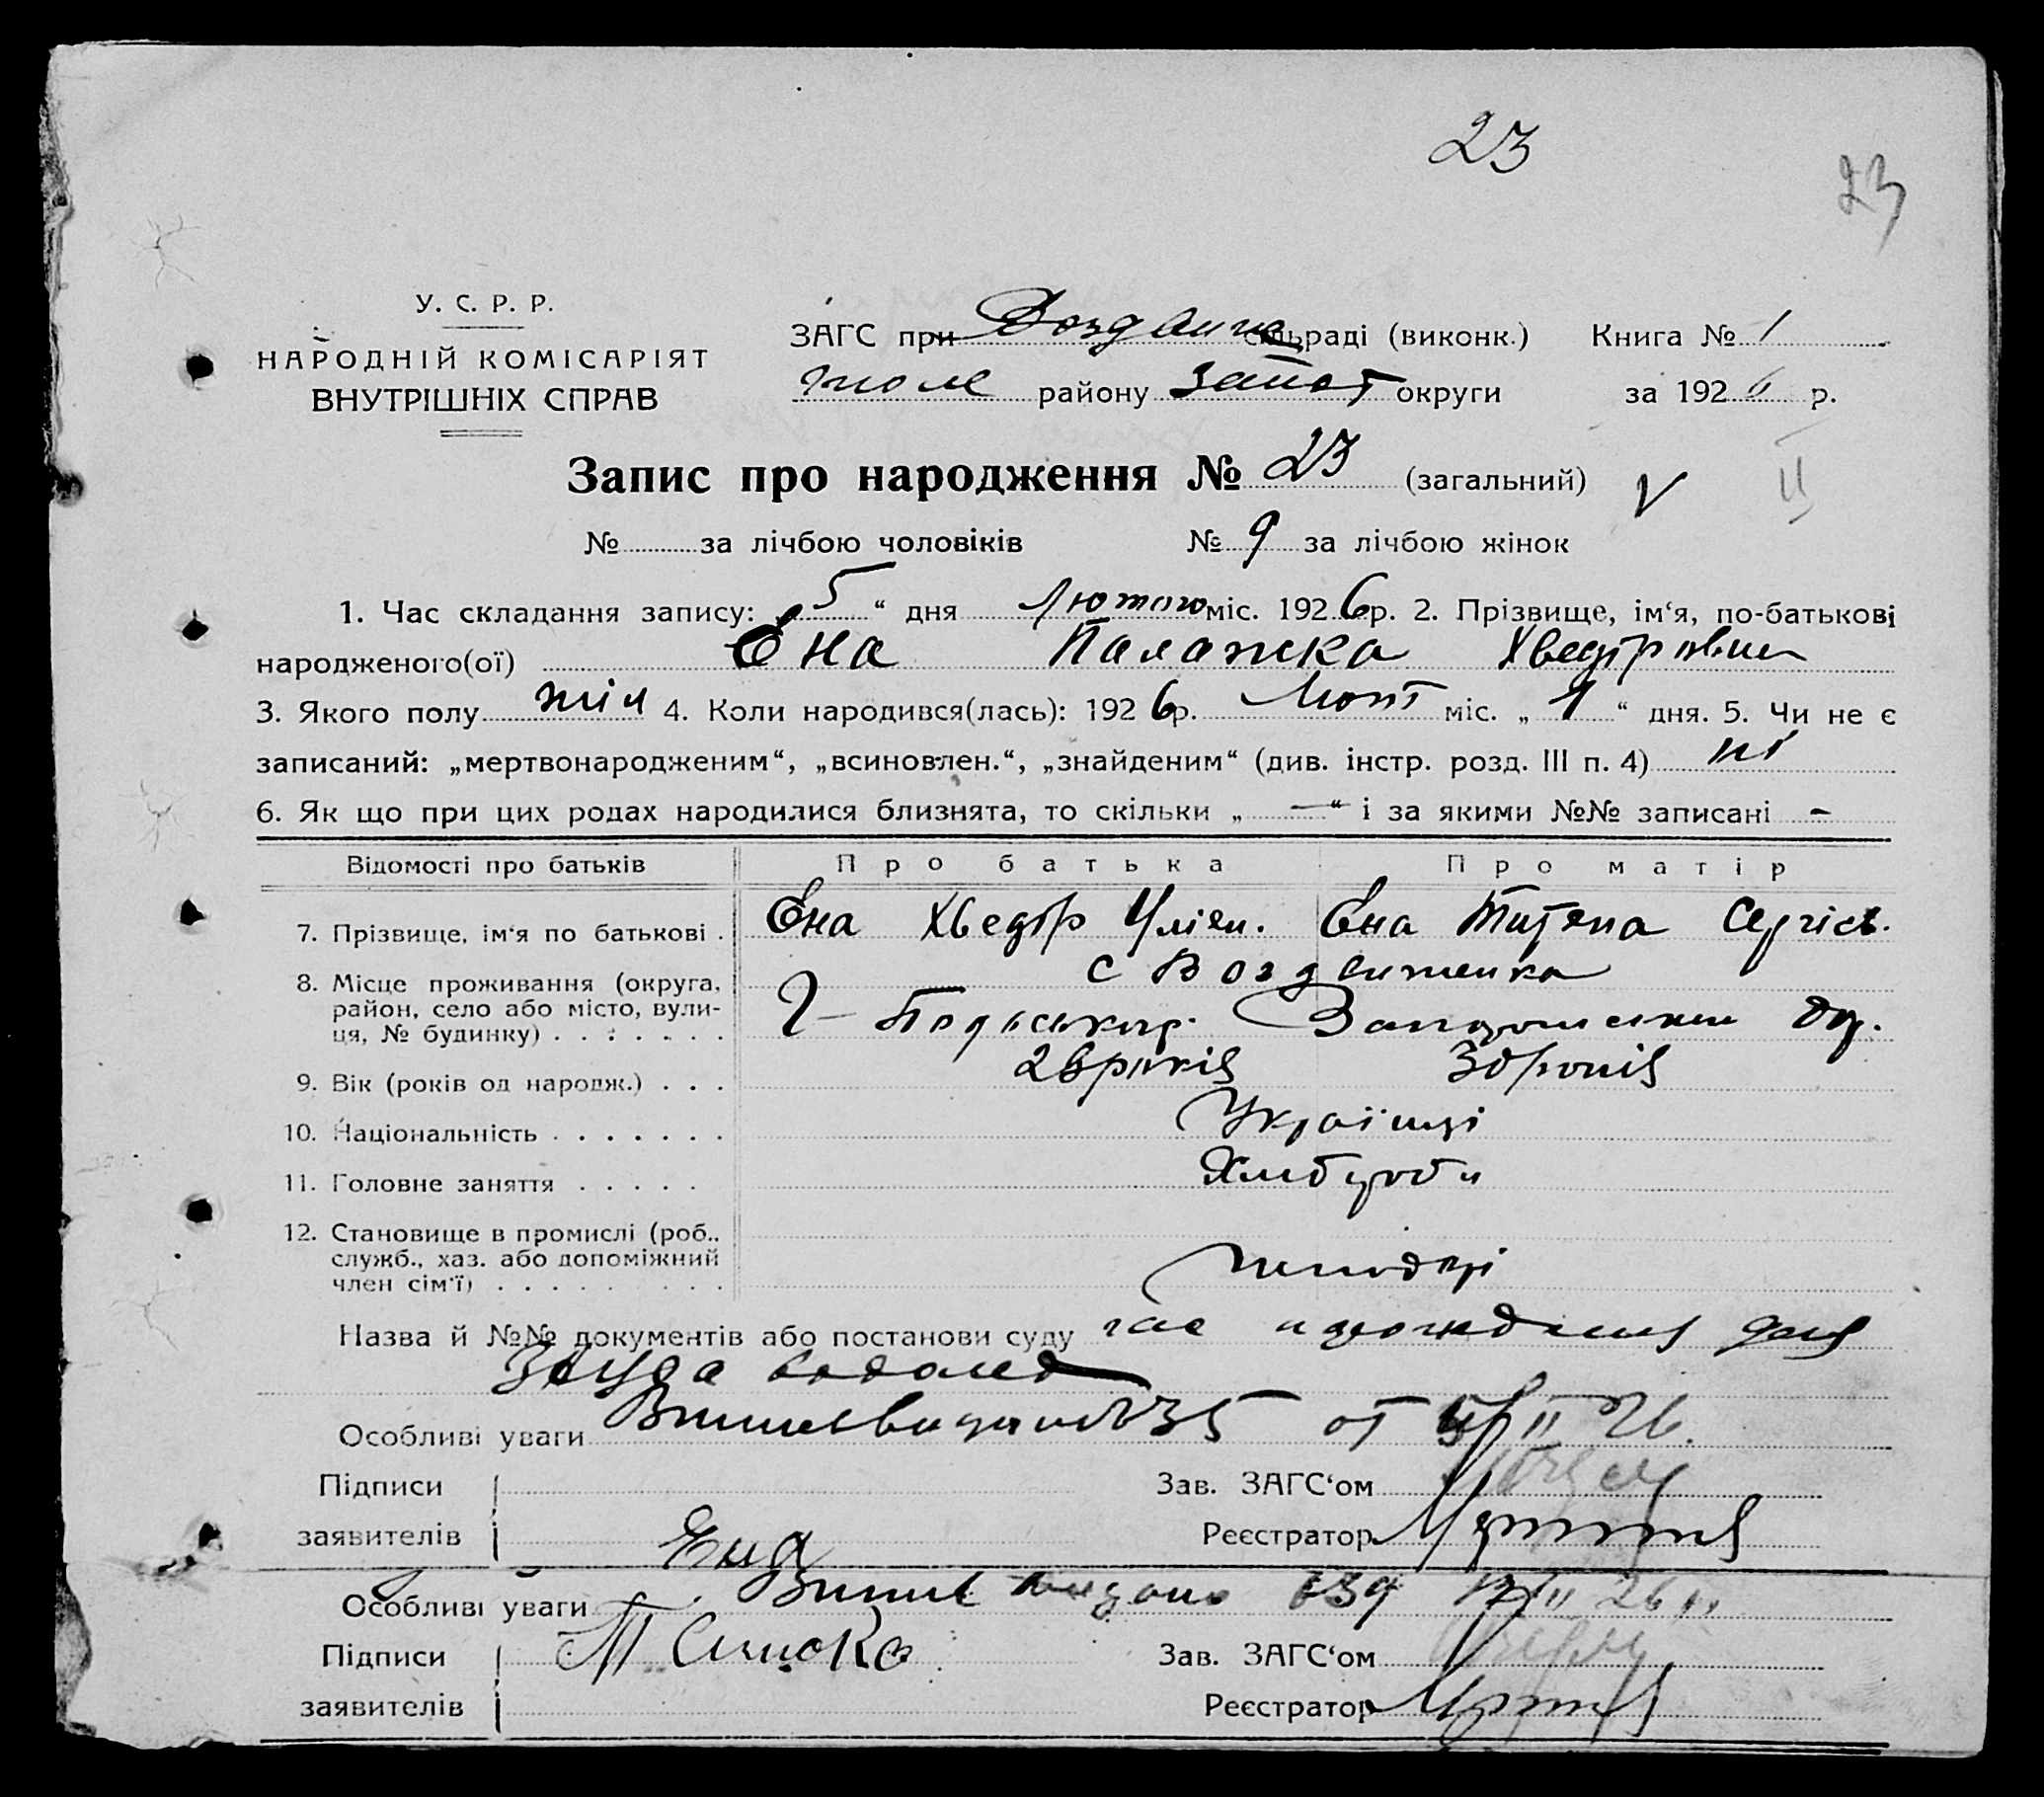 23
23
У. С. Р. Р.
НАРОДНІЙ КОМІСАРІЯТ
ВНУТРІШНІХ СПРАВ
ЗАГС при сільраді (виконк.) Книга № 1
району Запор округи за 1926 р.
Запис про народження № 23 (загальний) V II
№ за лічбою чоловіків № 9 за лічбою жінок
1. Час складання запису: „5“ дня лютого міс. 1926 р. 2. Прізвище, ім‘я, по-батькові
народженого(ої) Єна Палажка Хведорівна
3. Якого полу жін 4. Коли народився(лась): 1926р. Лют міс. „1“ дня. 5. Чи не є
записаний: „мертвонародженим“, „всиновлен.“, „знайденим“ (див. інстр. розд. III п. 4) ні
6. Як що при цих родах народилися близнята, то скільки „—“ і за якими №№ записані -
Відомості про батьків Про батька Про матір
7. Прізвище, ім‘я по батькові . Єна Хведір Улян. Єна Титяна Сергієв.
8. Місце проживання (округа, район, село або місто, вулиця, № будинку) . . . . . . . с Воздвиженка
9. Вік (років од народж.) . . . років 30 років
10. Національність . . . . . . . Українці
11. Головне заняття . . . . . Хлибороби
12. Становище в промислі (роб., служб., хаз. або допоміжний член сім‘ї) . . . . . . . . .
Назва й №№ документів або постанови суду
Особливі уваги 35 от II 26.
Підписи Зав. ЗАГС‘ом
заявителів Єна Реєстратор
Особливі уваги 26 р.
Підписи Зав. ЗАГС‘ом
заявителів Реєстратор